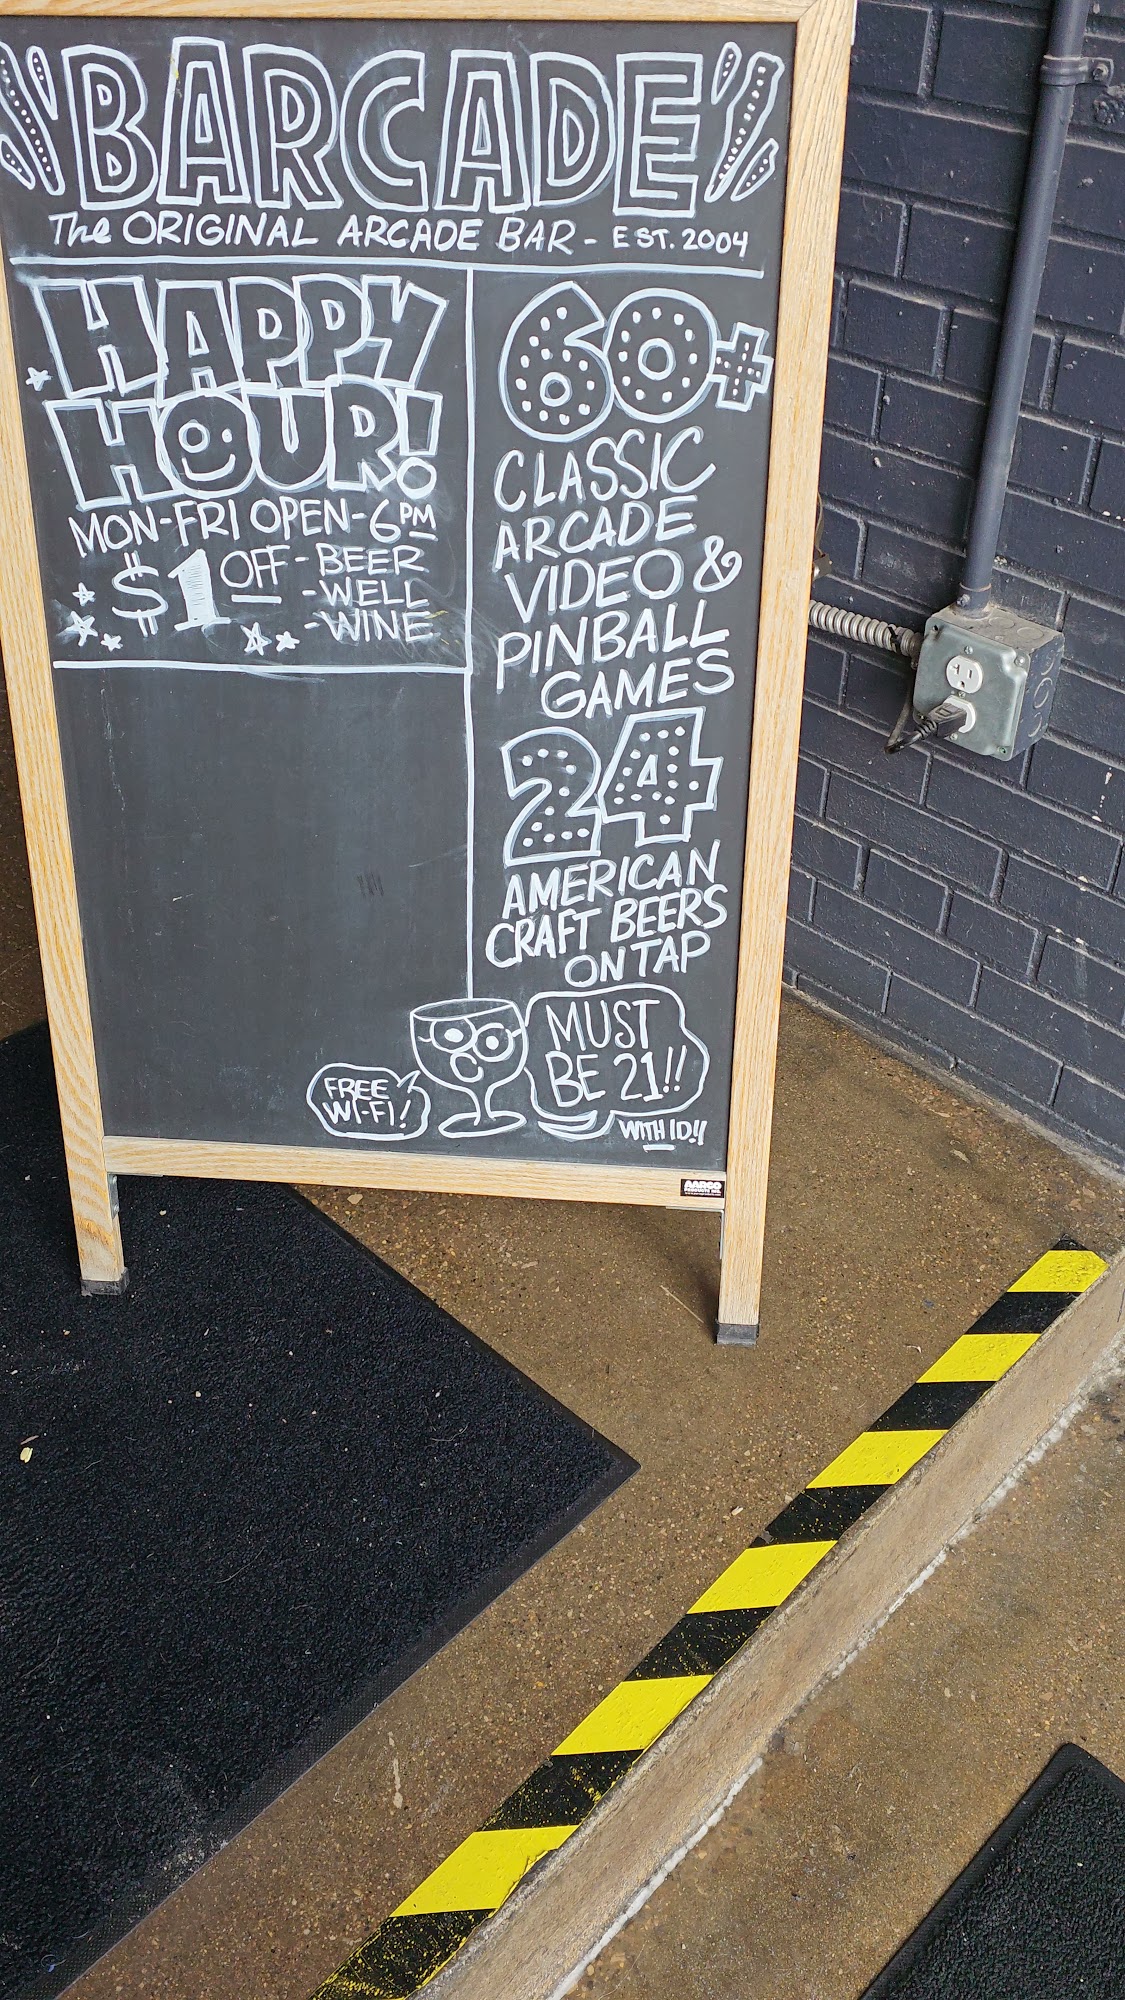 BARCADE
The ORIGINAL ARCADE BAR - EST. 2004
HAPPY
HOUR!
MON-FRI OPEN-6PM
$1 OFF - BEER
- WELL
- WINE
60+
CLASSIC
ARCADE
VIDEO &
PINBALL
GAMES
24
AMERICAN
CRAFT BEERS
ON TAP
MUST
BE 21!!
WITH ID!!
FREE
WI-FI!
AARCO